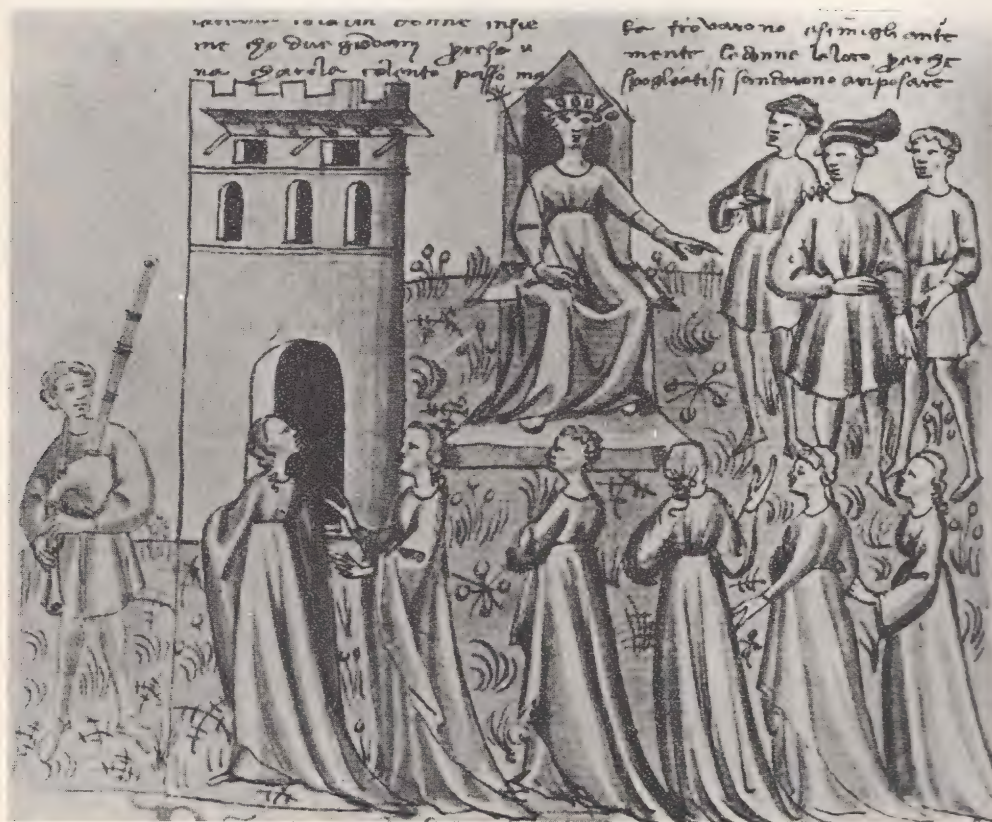 donne insie
me cho due giovani presa u
na charola colento passo ma
ta trovarono esimigliante
mente ledonne leloro perche
spogliatisi sandarono ariposare